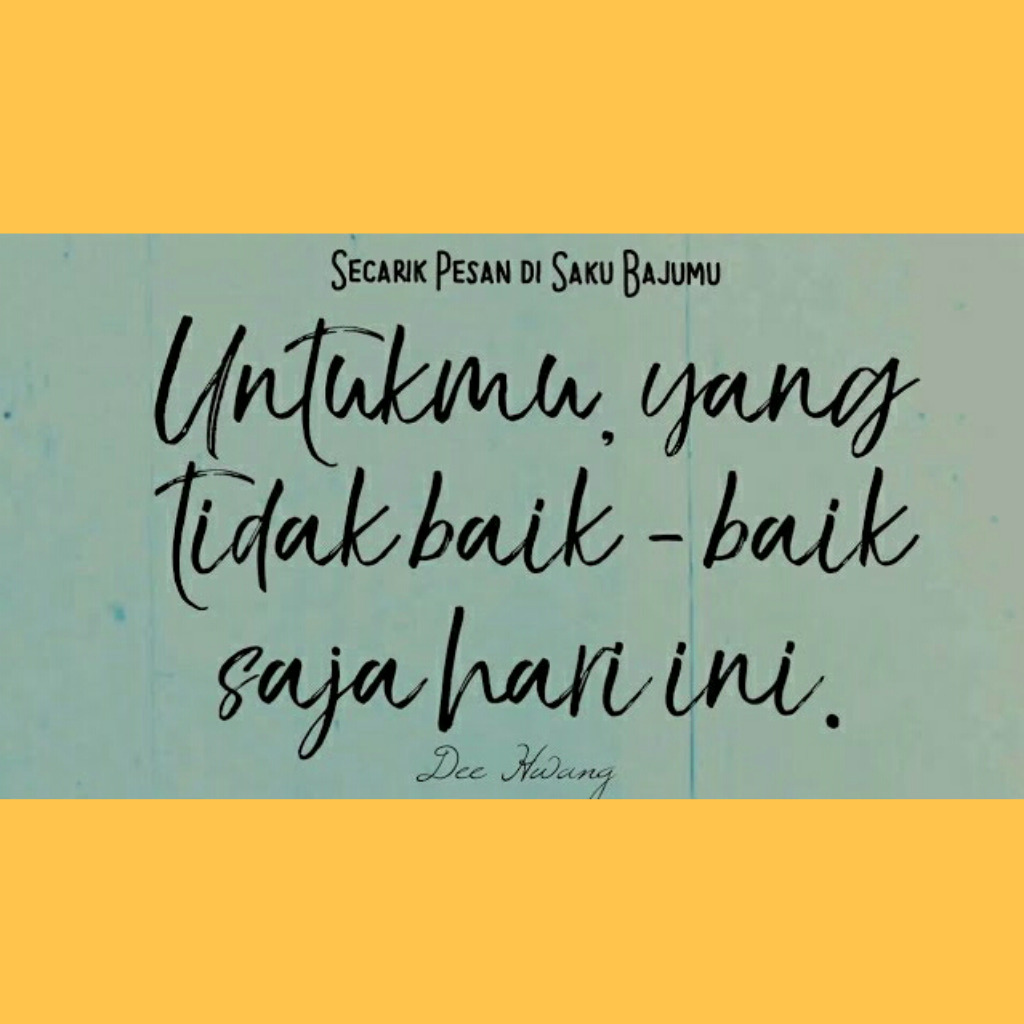 Secarik Pesan di Saku Bajumu
Untukmu, yang
tidak baik - baik
saja hari ini.
Dee Hwang